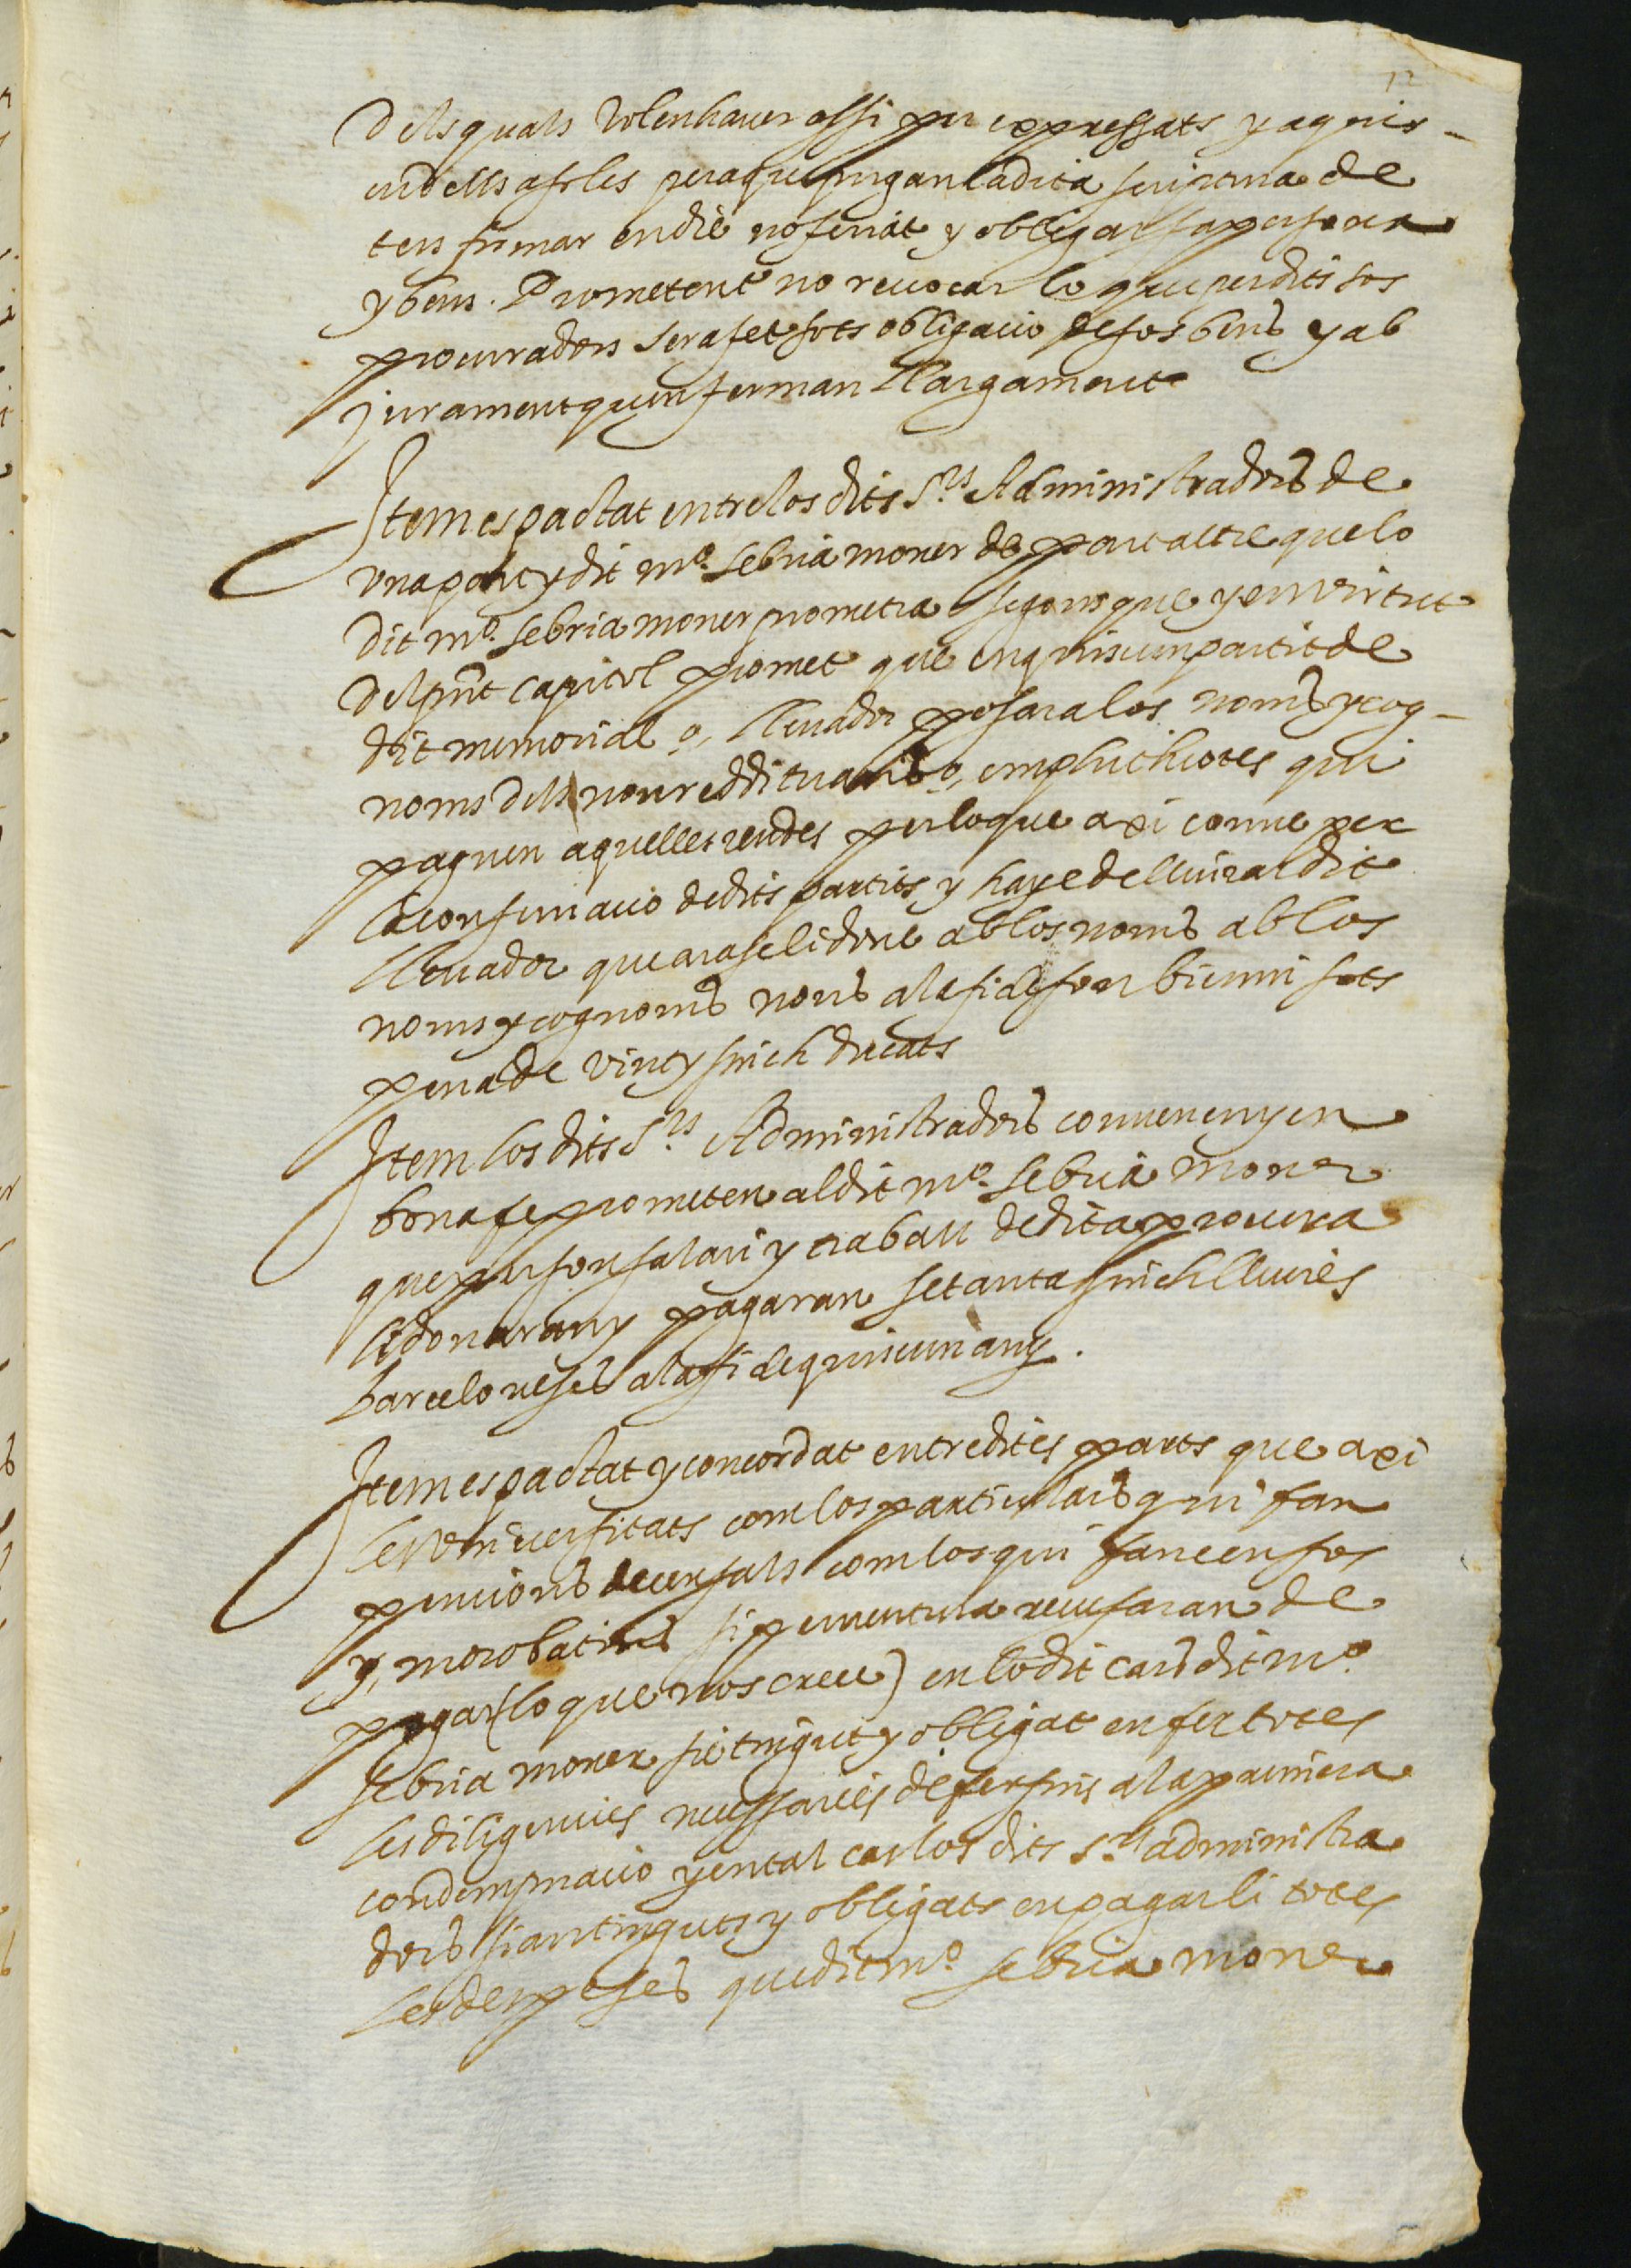 12
Dels quals volen haver assi per expressats y a quis-
cu dells asoles peraque pugan la dita scriptura de
ters firmar en die no feriat y obligar sa persona
y bens. Prometent no revocar lo que per dits sos
procuradors sera fet sots obligacio de sos bens y ab
jurament quen ferman llargament
Item es pactat entre los dits S.rs Administradors de
una part y dit m.o sebria moner de part altre que lo
dit m.o sebria moner prometra segons que y en virtut
del pnt capitol promet que en quiscun partit de
dit memorial o, llevador posara los noms y cog-
noms dels nou reddituaris o, emphiteotes qui
paguen aquelles rendes per lo que axi conve per
la confirmacio de dits partits y haye de lliurar dit
llevador que ara se li done ab los noms ab los
noms y cognoms nous a la fi de son bienni sots
pena de vint y sinch ducats
Item los dits S.rs Administradors convenen y en
bona fe prometen al dit m.o sebria moner
que per son salari y trabau de dita procura
li donaran y pagaran setanta sinch lliures
barceloneses a la fi de quiscun any.
Item es pactat y concordat entre dites parts que axi
les Universitats com los particulars qui fan
pencions de censals com los qui fan censos
y, morobatins si perventura recusaran de
pagar (lo que nos creu) en lo dit cars dit m.o
sebria moner sie tingut y obligat en fer totes
les diligencies necessaries de fer fins a la primera
condempnacio y en tal cas los dits s.rs administra
dors sian tinguts y obligats en pagarli totes
les despeses que dit m.o sebria moner